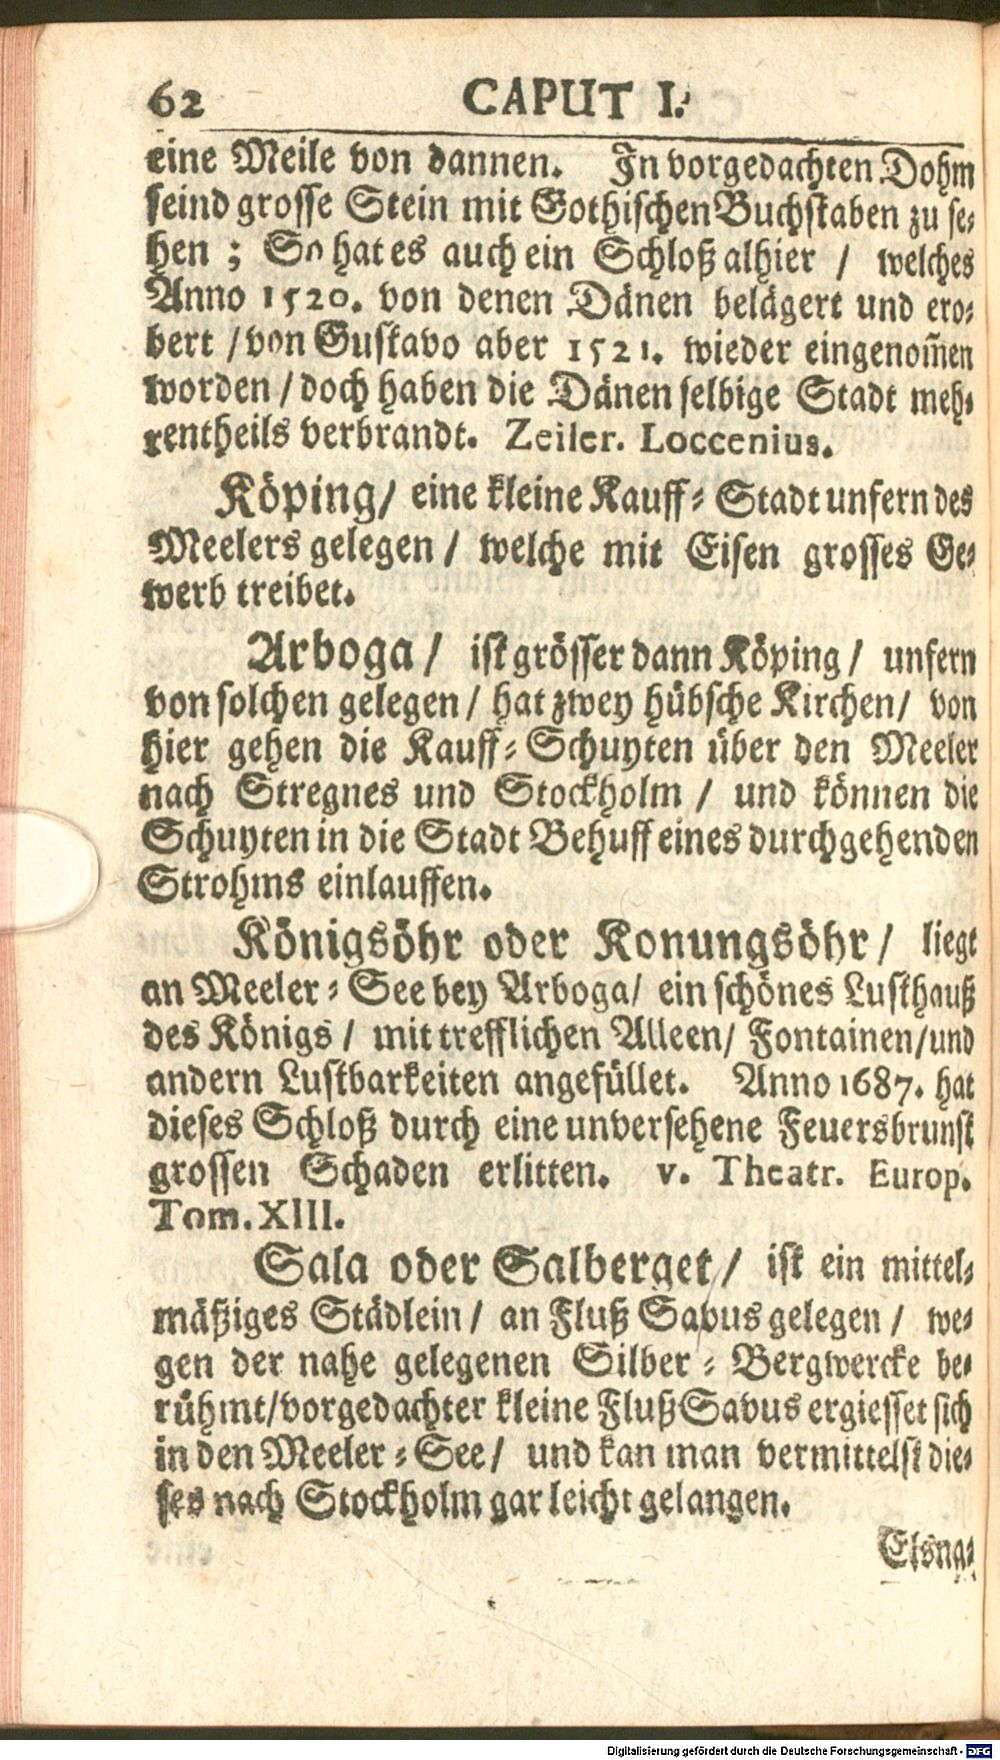 62 CAPUT I.
eine Meile von dannen. In vorgedachten Dohm
seind grosse Stein mit Gothischen Buchstaben zu se-
hen ; So hat es auch ein Schloß alhier / welches
Anno 1520. von denen Dänen belägert und ero-
bert / von Gustavo aber 1521. wieder eingenom̃en
worden / doch haben die Dänen selbige Stadt meh-
rentheils verbrandt. Zeiler. Loccenius.
Köping / eine kleine Kauff-Stadt unfern des
Meelers gelegen / welche mit Eisen grosses Ge-
werb treibet.
Arboga / ist grösser dann Köping / unfern
von solchen gelegen / hat zwey hübsche Kirchen / von
hier gehen die Kauff-Schuyten über den Meeler
nach Stregnes und Stockholm / und können die
Schuyten in die Stadt Behuff eines durchgehenden
Strohms einlauffen.
Königsöhr oder Konungsöhr / liegt
an Meeler-See bey Arboga / ein schönes Lusthauß
des Königs / mit trefflichen Alleen / Fontainen / und
andern Lustbarkeiten angefüllet. Anno 1687. hat
dieses Schloß durch eine unversehene Feuersbrunst
grossen Schaden erlitten. v. Theatr. Europ.
Tom. XIII.
Sala oder Salberget / ist ein mittel-
mäßiges Städlein / an Fluß Savus gelegen / we-
gen der nahe gelegenen Silber-Bergwercke be-
rühmt / vorgedachter kleine Fluß Savus ergiesset sich
in den Meeler-See / und kan man vermittelst die-
ses nach Stockholm gar leicht gelangen.
Elsna-
Digitalisierung gefördert durch die Deutsche Forschungsgemeinschaft - DFG